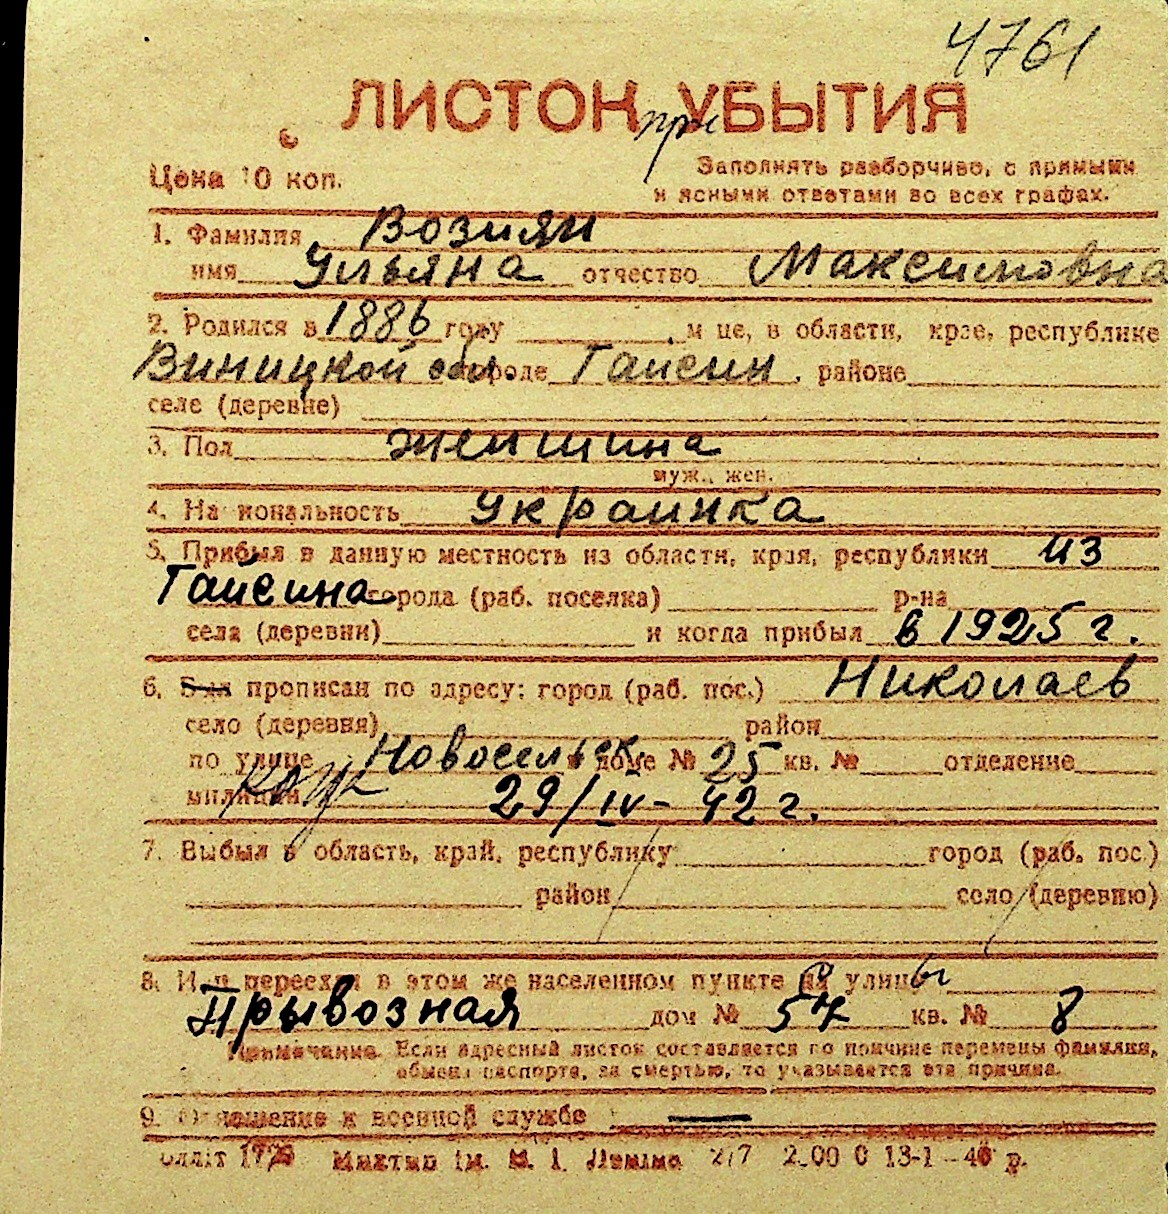 4761
ЛИСТОК при УБЫТИЯ
Цена 10 коп.
Заполнять разборчиво, с прямыми
и ясными ответами во всех графах.
1. Фамилия Возиян
имя Ульяна отчество Максимовна
2. Родился в 1886 году м-це, в области, крае, республике
Виницкой обл. городе Гайсин, районе
селе (деревне)
3. Пол женшина
муж., жен.
4. Национальность украинка
5. Прибыл в данную местность из области, края, республики из
Гайсина города (раб. поселка) р-на
села (деревни) и когда прибыл в 1925 г.
6. Был прописан по адресу: город (раб. пос.) Николаев
село (деревня) район
по улице Новосельск в доме № 25 кв. № отделение
милиции 29/IV - 42 г.
7. Выбыл в область, край, республику город (раб. пос.)
район село (деревню)
8. Или переехал в этом же населенном пункте с улицы
Прывозная дом № 57 кв. № 8
Примечание. Если адресный листок составляется по причине перемены фамилии,
обмена паспорта, за смертью, то указывается эта причина.
9. Отношение к военной службе —
им. В. І. Леніна 2.00 0 13-1-40 р.